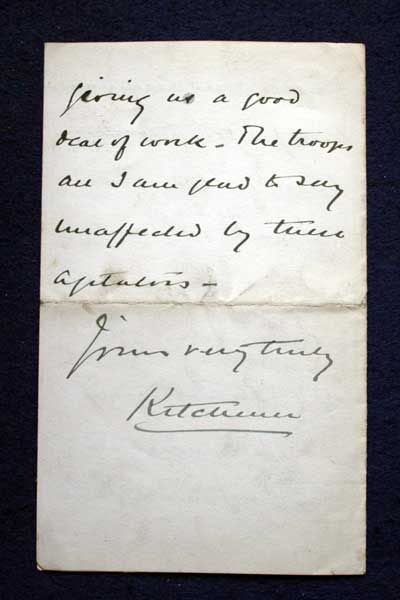 giving us a good
deal of work – The troops
are I am glad to say
unaffected by these
agitators –
Yours very truly
Kitchener